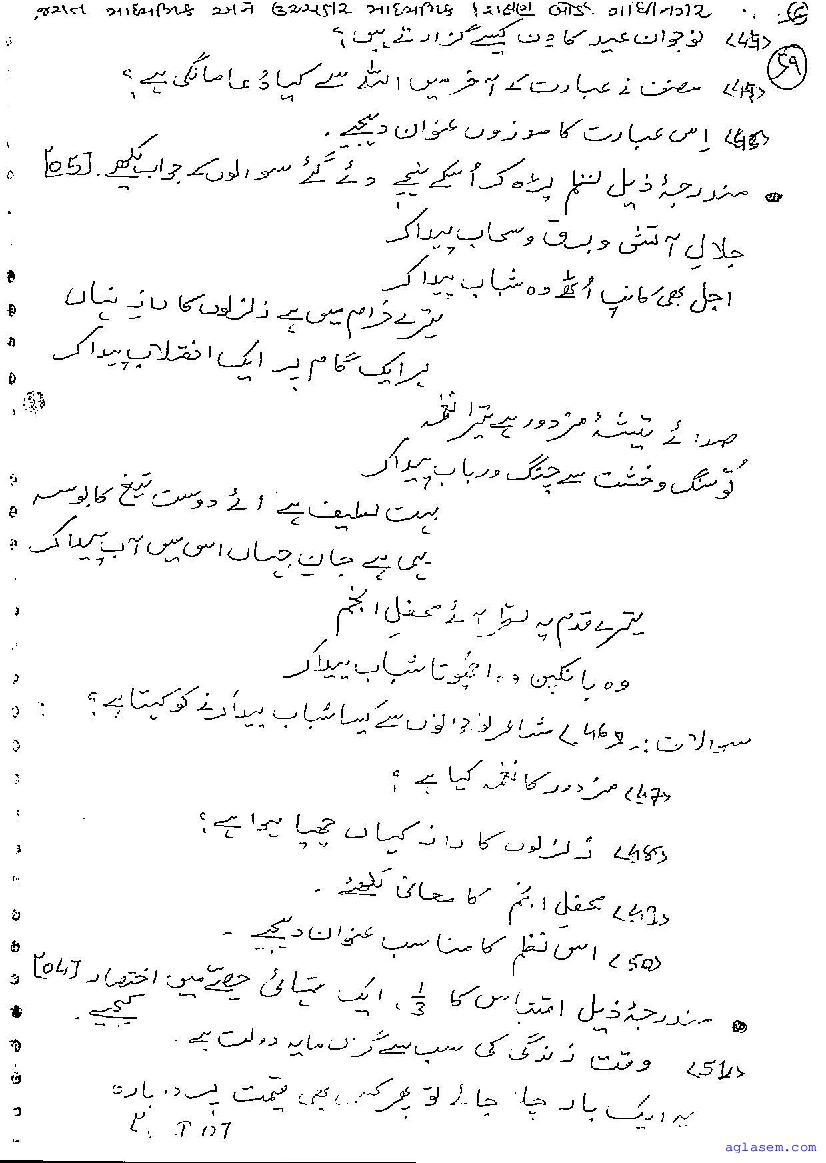 ગુજરાત માધ્યમિક અને ઉચ્ચતર માધ્યમિક શિક્ષણ બોર્ડ ગાંધીનગર
۵۹
نوجوان عید کا دن کیسے گزارتے ہیں؟
مصنف نے عبارت کے آخر میں اللہ سے کیا دُعا مانگی ہے؟
اِس عبارت کا موزوں عنوان دیجیے۔
• مندرجۂ ذیل نظم پڑھ کر اُسکے نیچے دئے گئے سوالوں کے جواب لکھیے۔ [05]
جلالِ آتش و برق و سحاب پیدا کر
اجل بھی کانپ اُٹھے وہ شباب پیدا کر
تیرے خرام میں ہے زلزلوں کا راز نہاں
ہر ایک گام پر ایک انقلاب پیدا کر
صدائے تیشۂ مزدور ہے تیرا نغمہ
تُو سنگ و خشت سے چنگ و رباب پیدا کر
بہت لطیف ہے اے دوست تیغ کا بوسہ
یہی ہے جانِ جہاں اس میں آب پیدا کر
تیرے قدم پہ نظر آئے محفلِ انجم
وہ بانکپن وہ اچھوتا شباب پیدا کر
سوالات :۔ (46) شاعر نوجوانوں سے کیسا شباب پیدا کرنے کو کہتا ہے؟
(47) مزدور کا نغمہ کیا ہے؟
(48) زلزلوں کا راز کہاں چھپا ہوا ہے؟
(49) محفلِ انجم کا معانی لکھئے۔
(50) اس نظم کا مناسب عنوان دیجیے۔
• مندرجۂ ذیل اقتباس کا 1/3 ایک تہائی حصّے میں اختصار کیجیے۔ [04]
(51) وقت زندگی کی سب سے گراں مایہ دولت ہے۔
یہ ایک بار چلا جائے تو پھر کسی بھی قیمت پر دوبارہ
P.T.O7
aglasem.com